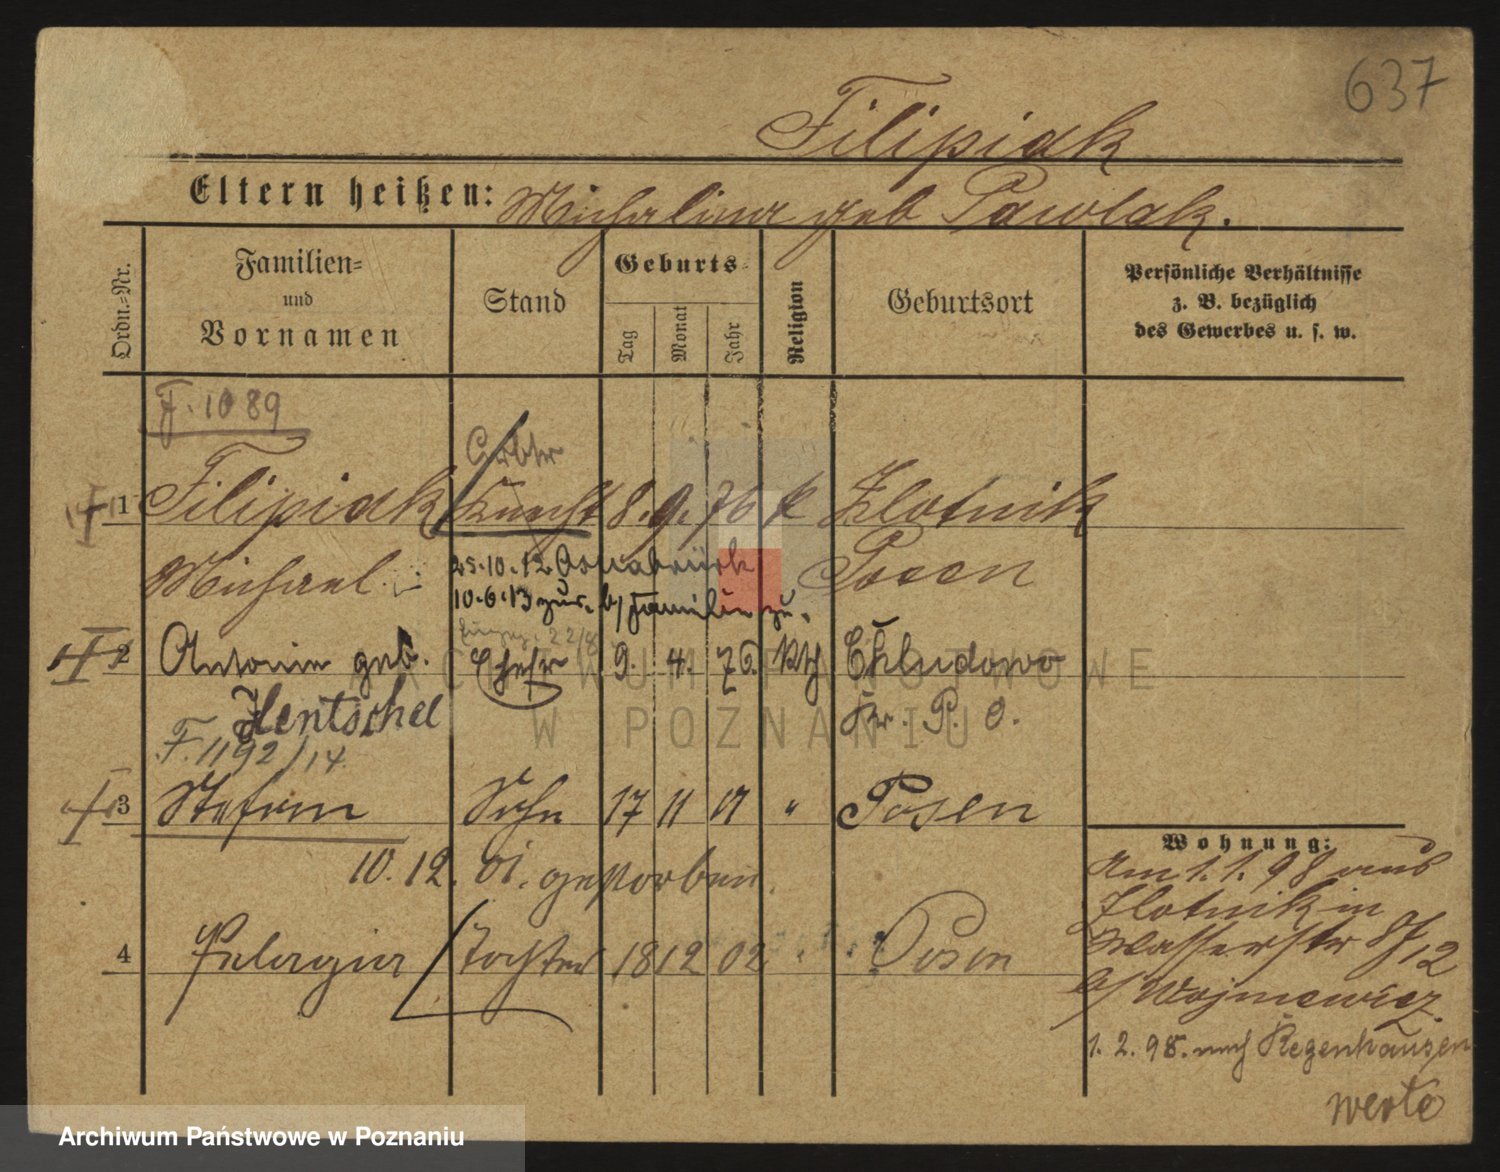 637
Filipiak
Eltern heißen: Michalina geb Pawlak.
Ordn.-Nr.
Familien-
und
Vornamen
Stand
Geburts-
Tag
Monat
Jahr
Religion
Geburtsort
Persönliche Verhältnisse
z. B. bezüglich
des Gewerbes u. s. w.
F. 1089
Arbtr
1 Filipiak Knecht 8. 9. 76 k Zlotnik
Michael Posen
25.10.12 Osnabrück
10.6.13 zur. b/ Familie zu.
22/8
2 Antonie geb. Ehefr 9. 4. 76. kth Chludowo
Hentschel Kr. P. O.
F. 1192/14.
3 Stefan Sohn 17 11 01 " Posen
10. 12. 01. gestorben.
4 Pelagia Tochter 18 12 02 " Posen
Wohnung:
Am 1. 1. 98 aus
Zlotnik in
Wasserstr 8/12
b/ Wojniewicz.
1. 2. 98. nach Regenhausen
werte
ARCHIWUM PAŃSTWOWE
W POZNANIU
Archiwum Państwowe w Poznaniu